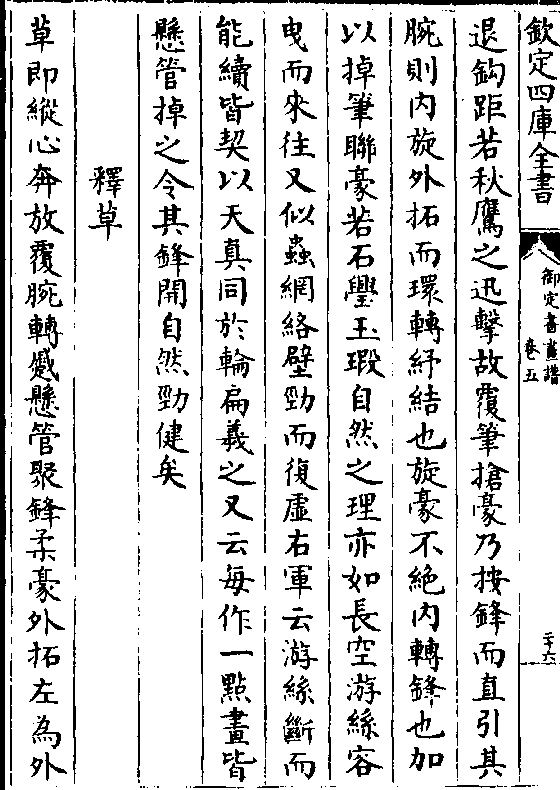 欽定四庫全書
御定書畫譜
卷五
二十六
退鈎距若秋鷹之迅擊故覆筆搶豪乃按鋒而直引其
腕則内旋外拓而環轉紓結也旋豪不絶内轉鋒也加
以掉筆聯豪若石璺玉瑕自然之理亦如長空游絲容
曳而來往又似蟲網絡壁勁而復虚右軍云游絲斷而
能續皆契以天真同於輪扁義之又云每作一點畫皆
懸管掉之令其鋒開自然勁健矣
釋草
草即縱心奔放覆腕轉蹙懸管聚鋒柔豪外拓左為外